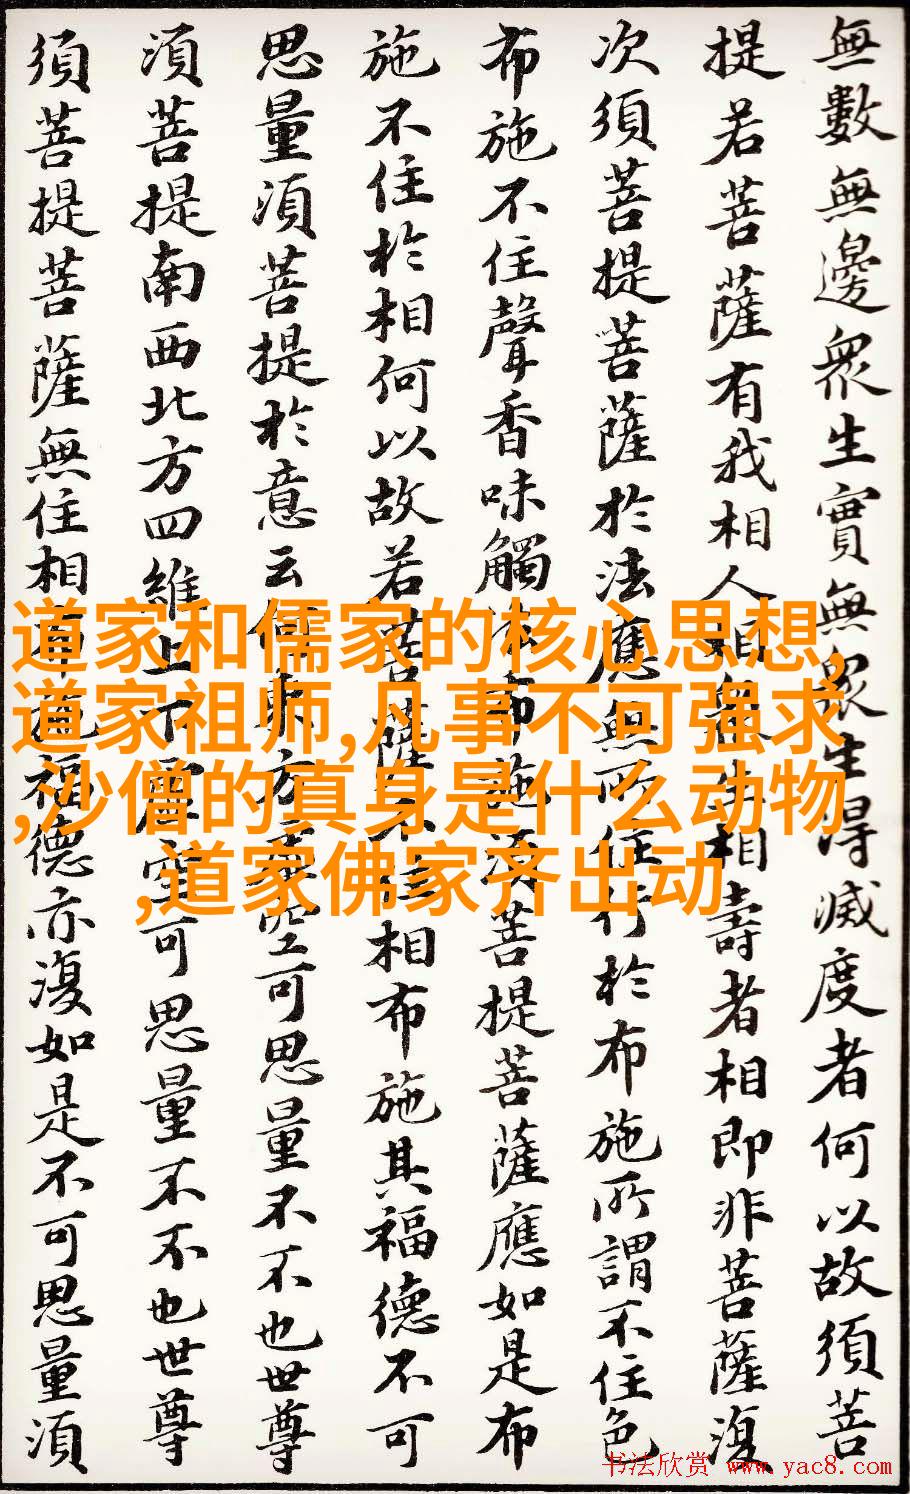 無數無邊衆生實無衆生得滅度者何以故須菩
提若菩薩有我相人相衆生相壽者相即非菩薩復
次須菩提菩薩於法應無所住行於布施所謂不住色
布施不住聲香味觸法布施須菩提菩薩應如是布
施不住於相何以故若菩薩不住相布施其福德不可
思量須菩提於意云何東方虛空可思量不不也世尊
須菩提南西北方四維上下虛空可思量不不也世尊
須菩提菩薩無住相布施福德亦復如是不可思量須
道家和儒家的核心思想,
道家祖师,凡事不可强求
,沙僧的真身是什么动物
,道家佛家齐出动
书法欣赏 www.yac8.com